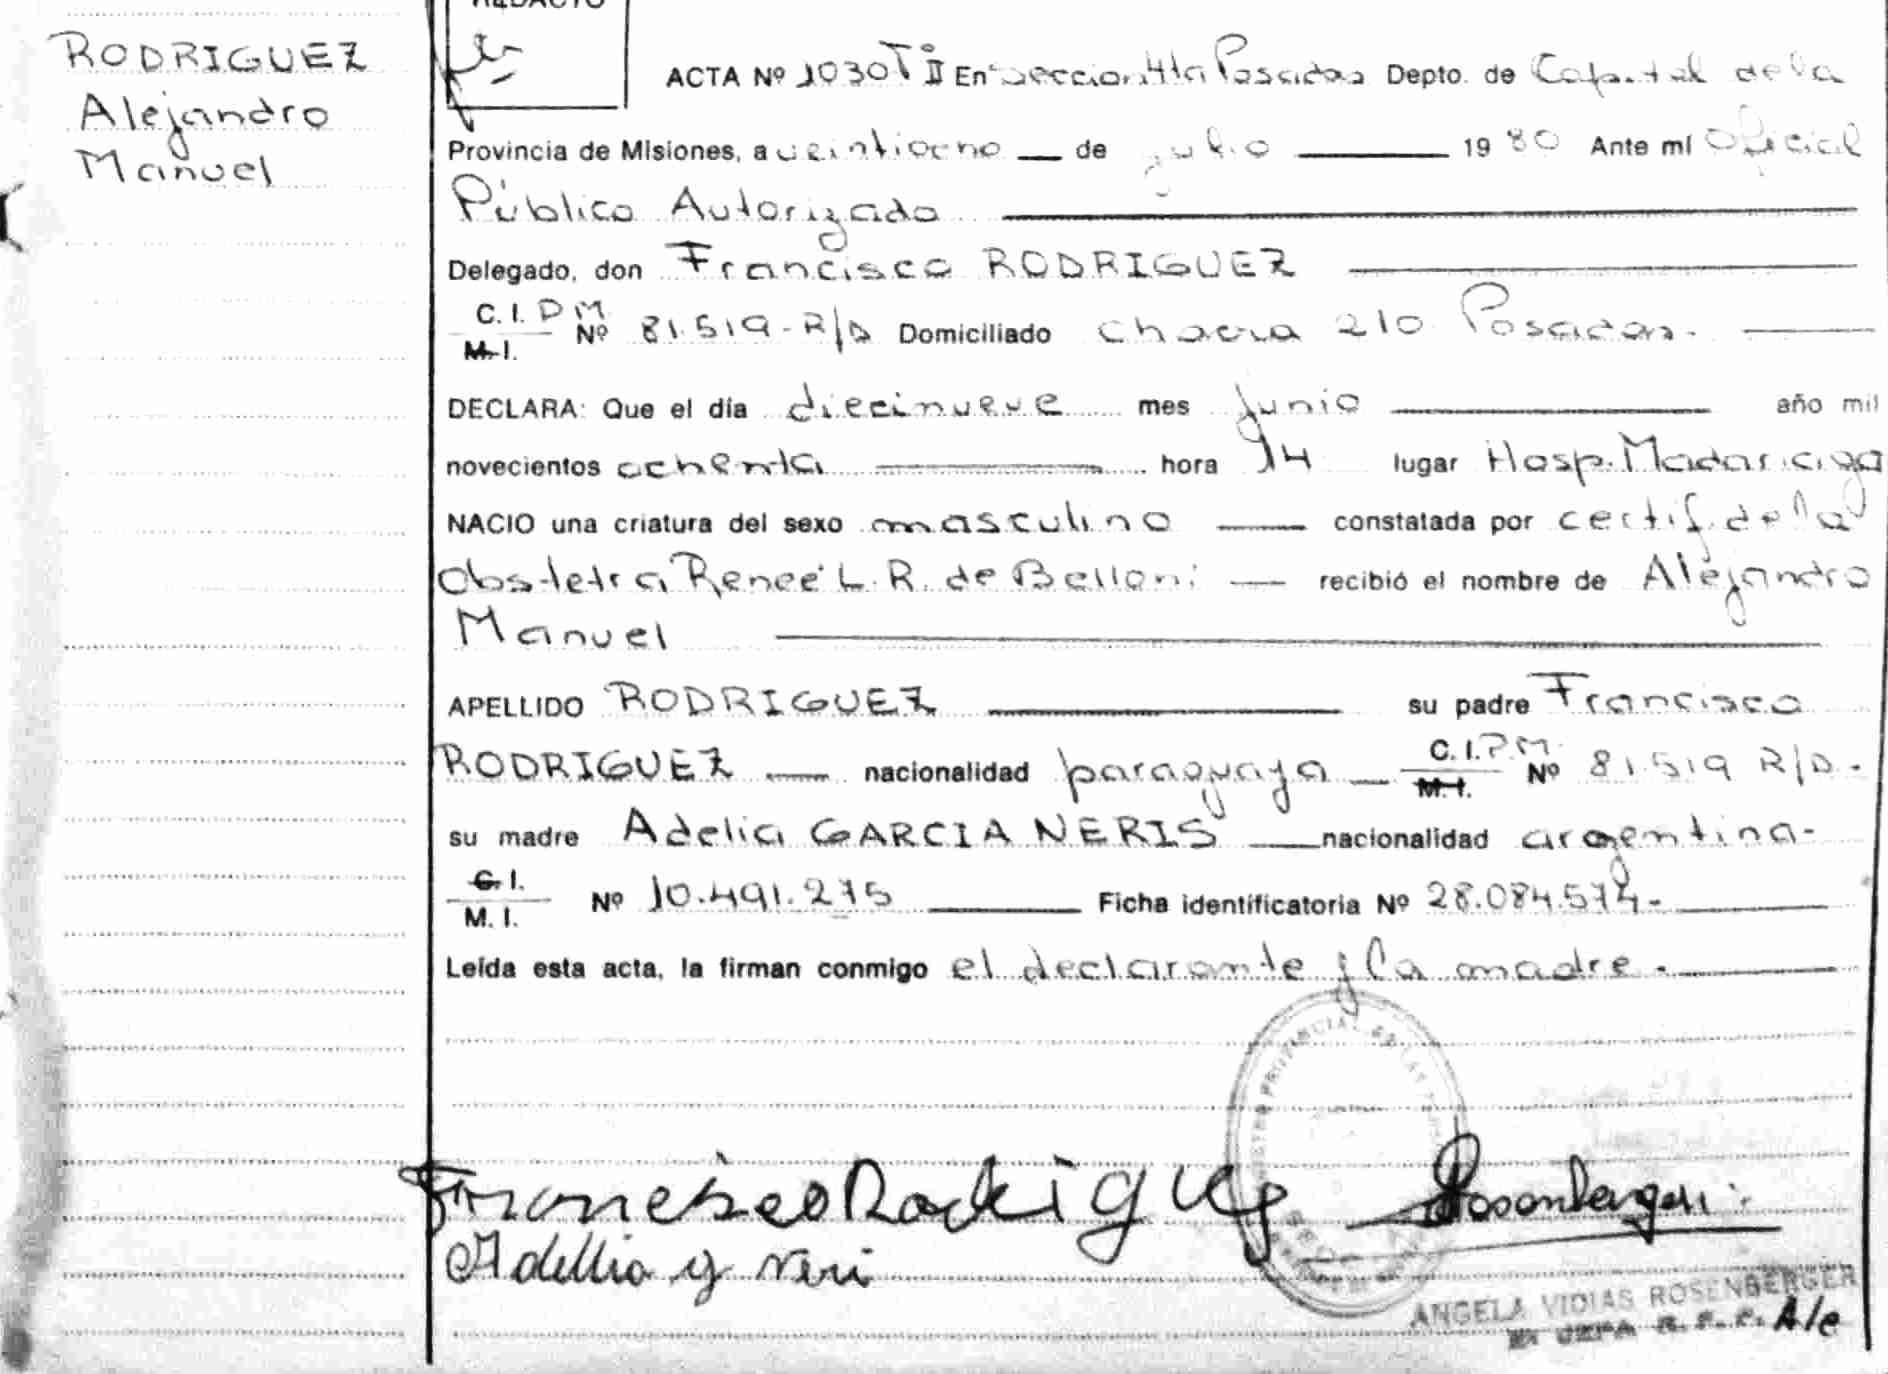 REDACTO
RODRIGUEZ
Alejandro
Manuel
ACTA Nº 1030 Tº II En Seccion 4ta Posadas Depto. de Capital de la
Provincia de Misiones, a veintiocho de julio 1980 Ante mí Oficial
Público Autorizado
Delegado, don Francisco RODRIGUEZ
C. I. P M
M. I. Nº 81.519 - R/D Domiciliado Chacra 210 Posadas.
DECLARA: Que el día diecinueve mes junio año mil
novecientos ochenta hora 14 lugar Hosp. Madariaga
NACIO una criatura del sexo masculino constatada por certif. de la
Obstetra Reneé L. R. de Belloni recibió el nombre de Alejandro
Manuel
APELLIDO RODRIGUEZ su padre Francisco
RODRIGUEZ nacionalidad paraguaya C. I. P.M.
M. I. Nº 81.519 R/D.
su madre Adelia GARCIA NERIS nacionalidad argentina-
C. I.
M. I. Nº 10.491.275 Ficha identificatoria Nº 28.084.574-
Leída esta acta, la firman conmigo el declarante y la madre.-
Francisco Rodrigue
Adellia g neri
ANGELA VIDIAS ROSENBERGER
A/c